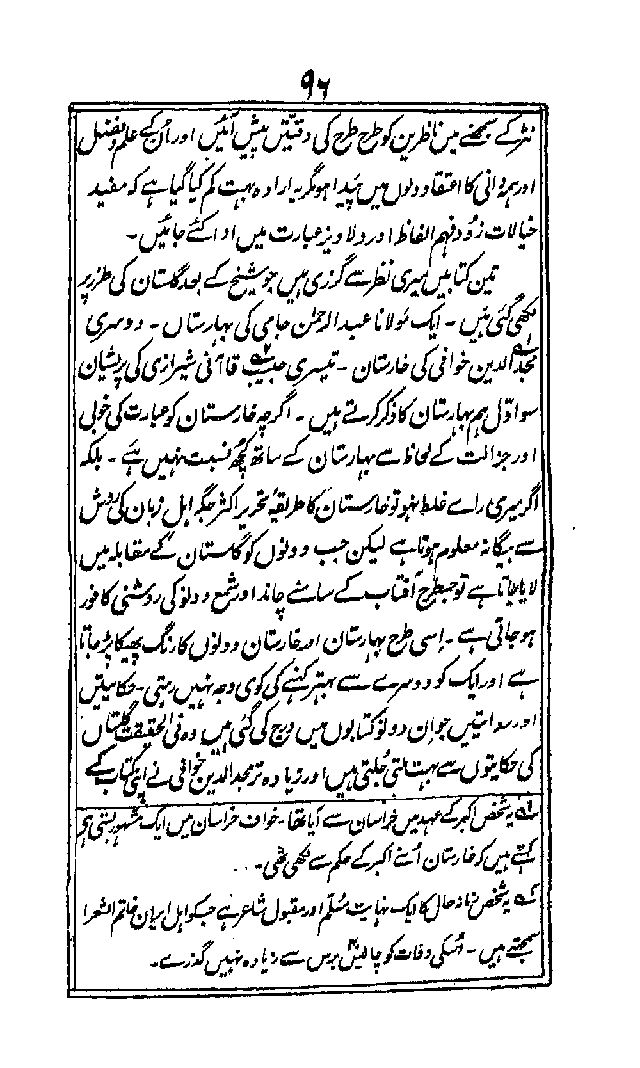 ۹۶
نثر کے سمجھنے میں ناظرین کو طرح طرح کی دقتیں پیش آئیں اور اُن کے علم و فضل
اور ہمہ دانی کا اعتقاد دلوں میں پیدا ہو مگر یہ ارادہ بہت کم کیا گیا ہے کہ مفید
خیالات زُود فہم الفاظ اور دلاویز عبارت میں ادا کئے جائیں۔
تین کتابیں میری نظر سے گزری ہیں جو شیخ کے بعد گلستان کی طرز پر
لکھی گئی ہیں۔ ایک مولانا عبدالرحمٰن جامی کی بہارستاں۔ دوسری
مجدالدین خوافی کی خارستان۔ تیسری حبیب قاآنی شیرازی کی پریشان
سو اوّل ہم بہارستان کا ذکر کرتے ہیں۔ اگرچہ خارستان کو عبارت کی خوبی
اور جزالت کے لحاظ سے بہارستان کے ساتھ کچھ نسبت نہیں ہے۔ بلکہ
اگر میری راے غلط نہو تو خارستان کا طریقۂ تحریر اکثر جگہ اہل زبان کی روش
سے بیگانہ معلوم ہوتا ہے لیکن جب دونوں کو گلستان کے مقابلہ میں
لایا جاتا ہے تو جسطرح آفتاب کے سامنے چاند اور شمع دونو کی روشنی کافور
ہو جاتی ہے۔ اِسی طرح بہارستان اور خارستان دونوں کا رنگ پھیکا پڑ جاتا
ہے اور ایک کو دوسرے سے بہتر کہنے کی کوی وجہ نہیں رہتی۔ حکایتیں
اور روایتیں جو ان دونو کتابوں میں درج کی گئی ہیں وہ فی الحقیقت گلستاں
کی حکایتوں سے بہت ملتی جُلتی ہیں اور زیادہ تر مجدالدین خوافی نے اپنی کتاب کے
۱؎ یہ شخص اکبر کے عہد میں خراسان سے آیا تھا۔ خواف خراسان میں ایک مشہور بستی ہے
کہتے ہیں کہ خارستان اُسنے اکبر کے حکم سے لکھی تھی۔
۲؎ یہ شخص زمانۂ حال کا ایک نہایت مسلّم اور مقبول شاعر ہے جسکو اہل ایران خاتم الشعرا
سمجھتے ہیں۔ اُسکی وفات کو چالیس برس سے زیادہ نہیں گذرے۔